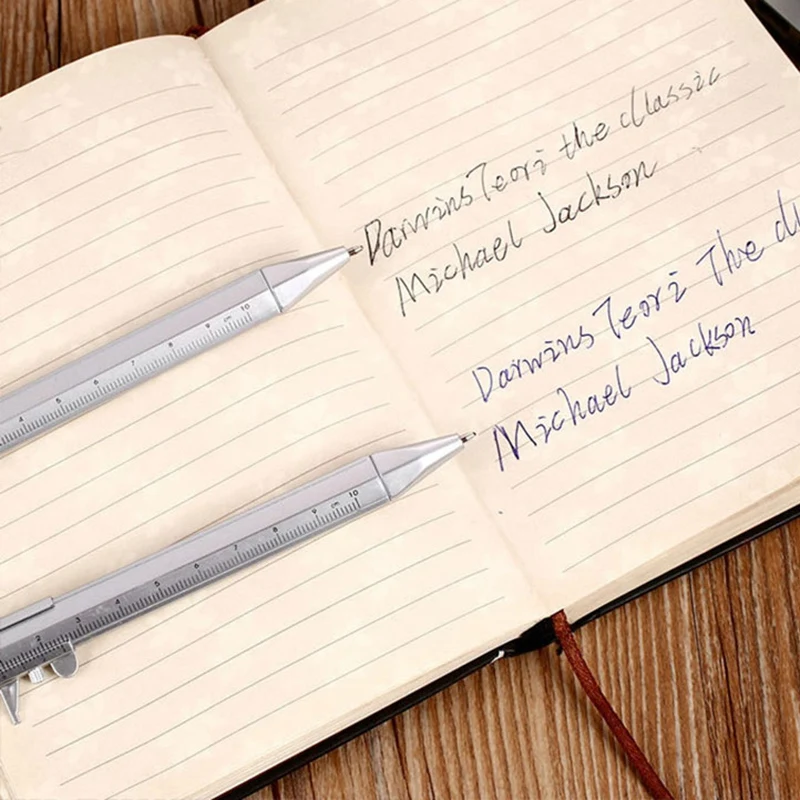 Darwins Teori the classic
Michael Jackson
Darwins Teori The
Michael Jackson
4 5 6 7 8 9 cm 10
2 3 4 5 6 7 8 9 cm 10